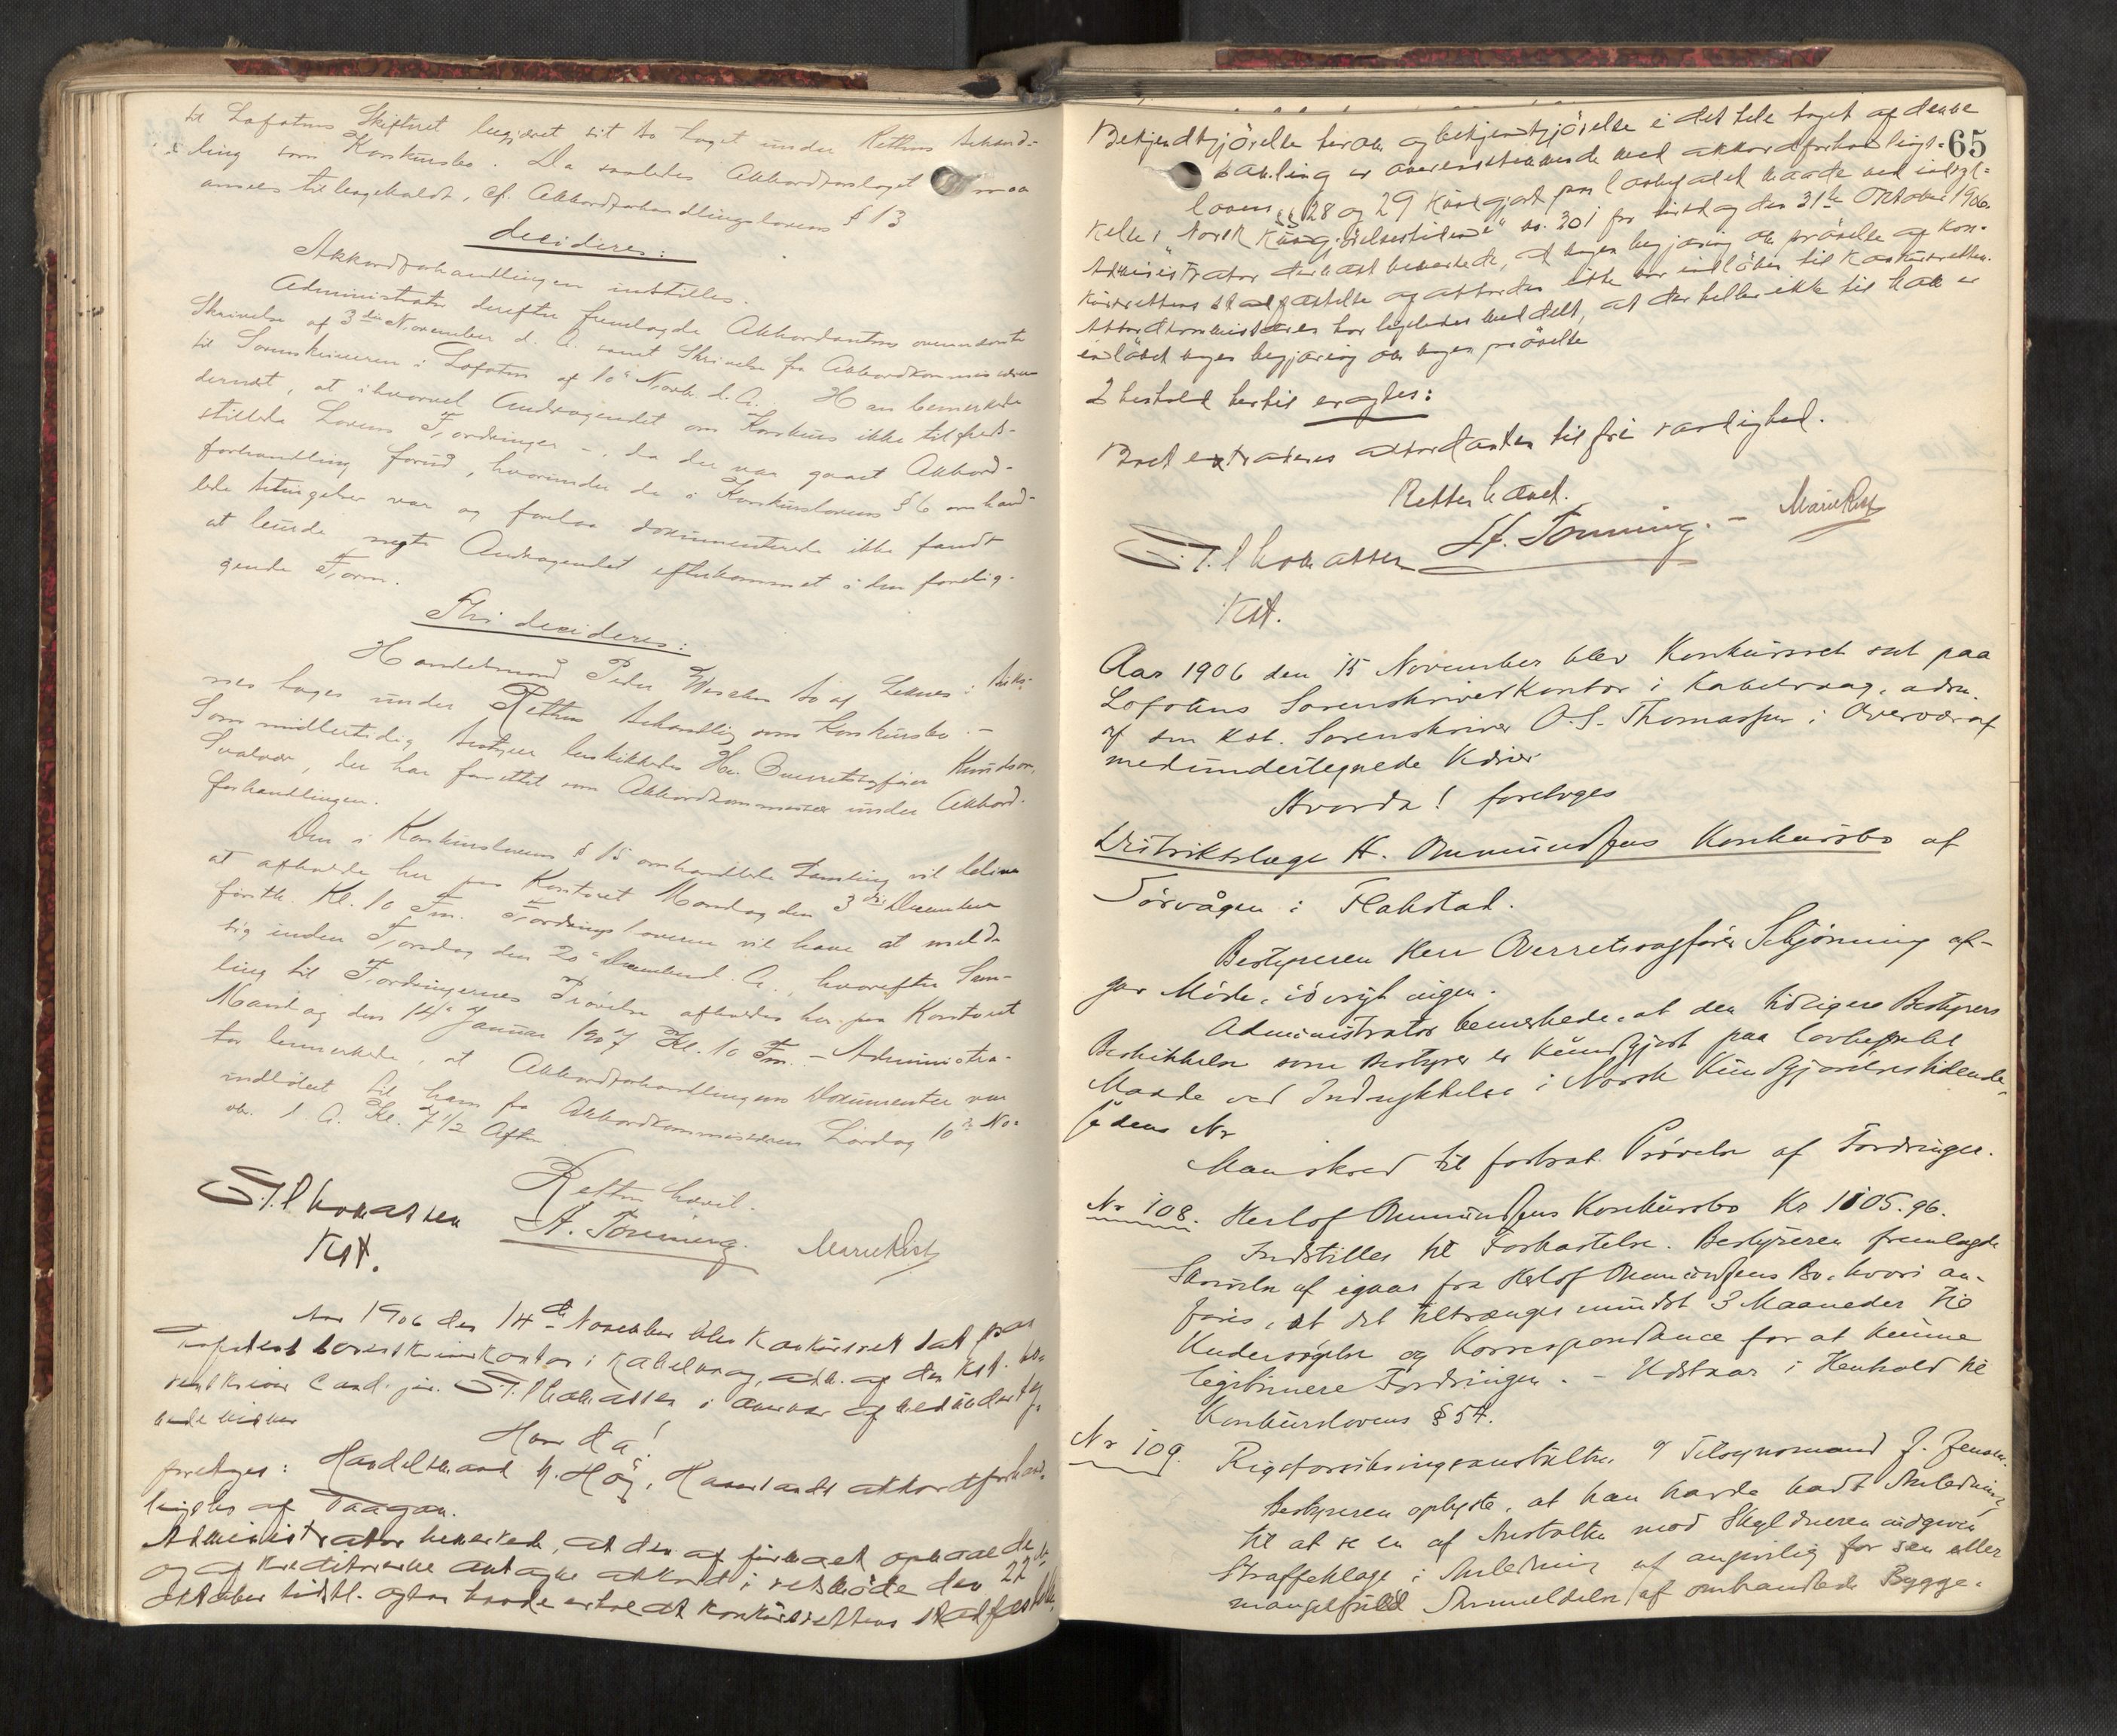 til Lofotens Skifteret begjæret sit Bo taget under Rettens Behand-
ling som Konkursbo. Da saaledes Akkordforslaget maa
ansees tilbagekaldt, cf. Akkordforhandlingslovens § 13
decideres:
Akkordforhandlingen indstilles.
Administrator derefter fremlagde Akkordantens ovennævnte
Skrivelse af 3die November d. A. samt Skrivelse fra Akkordkommissæren
til Sorenskriveren i Lofoten af 10de Novb. d. A. Han bemerkede
dernæst, at ihvorvel Andragendet om Konkurs ikke tilfreds-
stillede Lovens Fordringer -, da der var gaaet Akkord-
forhandling forud, hvorunder de i Konkurslovens § 6 omhand-
lede Betingelser var og forelaa dokumenterede ikke fandt
at burde negte Andragendet efterkommet i den forelig-
gende Form.
Thi decideres:
Handelsmand Peder Bo af Leknes i Buks-
nes tages under Rettens Behandling som Konkursbo. -
Som midlertidig Bestyrer beskikkedes Hr. Overretssagfører Knudsen,
Svolvær, der har forrettet som Akkordkommissær under Akkord-
forhandlingen.
Den i Konkurslovens § 15 omhandlede Samling vil blive
at afholde her paa Kontoret Mandag den 3die December
førstk. Kl. 10 Fm. Fordringshaverne vil have at melde
sig inden Torsdag den 20de December d. A., hvorefter Sam-
ling til Fordringernes Prøvelse afholdes her paa Kontoret
Mandag den 14de Januar 1907 Kl. 10 Fm. - Administra-
tor bemerkede, at Akkordforhandlingens Dokumenter var
indløbet til ham fra Akkordkommissæren Lørdag 10de No-
vbr. d. A. Kl. 7 1/2 Aften.
Retten hævet.
O.S. Thomassen A. Tönning. Marie Rist
Kst.
Aar 1906 den 14de November blev Konkursret sat paa
Lofotens Sorenskriverkontor i Kabelvaag, adm. af den kst. So-
renskriver Cand. jur. O.S. Thomassen i overvær af medunderteg-
nede vidner
Hvorda!
foretoges: Handelsmand H. Hög, Havnlands akkordforhand-
lingsbo af Vaagan.
Administrator bemerkede, at den af firmaet opnaaede
og af Kreditorerne antagne akkord i retsmöde den 22
oktober sidstl. ogsaa havde erholdt konkursrettens stadfæstelse.
65
Bekjendtgjörelse herom og bekjendtgjörelse i det hele taget af denne
samling er overensstemmende med akkordforhandlings-
lovens §§ 28 og 29 kundgjort paa lovbefalet maade ved indryk-
kelse i "Norsk Kundgjörelsestidende" no. 301 for tirsdag den 31te Oktober 1906.
Administrator dernæst bemerkede, at ingen begjæring om prövelse af Kon-
kursrettens stadfæstelse af akkorden ikke var indlöbet til Konkursretten.
Akkordkommissæren har ligeledes meddelt, at der heller ikke til ham er
indlöbet nogen begjæring om nogen prövelse
I henhold hertil eragtes:
Boet extraderes akkordanten til fri raadighed.
Retten hævet.
O.S. Thomassen A. Tönning. - Marie Rist
Kst.
Aar 1906 den 15 November blev Konkursret sat paa
Lofotens Sorenskriverkontor i Kabelvaag, adm.
af den kst. Sorenskriver O.S. Thomassen i Overvær af
medundertegnede Vidner
Hvorda! foretoges
Distriktslæge H. Ommundsens Konkursbo af
Sørvågen i Flakstad.
Bestyreren Herr Overretssagfører Schjønning af-
gav Møde, iøvrigt ingen.
Administrator bemerkede, at den tidligere Bestyrers
Beskikkelse som Bestyrer er kundgjort paa lovbefalet
Maade ved Indrykkelse i Norsk Kundgjørelsestidende,
sidens Nr
Man skred til fortsat Prøvelse af Fordringer.
Nr 108. Herlof Ommundsens Konkursbo Kr 1105.96.
Indstilles til Forkastelse. Bestyreren fremlagde
Skrivelse af igaar fra Herlof Ommundsens Bo, hvori an-
føres, at det tiltrænges mindst 3 Maaneder til
Undersøgelse og Korrespondance for at kunne
legitimere Fordringen. - Udstaar i Henhold til
Konkurslovens § 54.
Nr 109. Rigsforsikringsanstalten v/ Tilsynsmand J. Jensen.
Bestyreren oplyste, at han havde havt Anledning
til at se en af Anstalten mod Skyldneren indgiven
Straffeklage i Anledning af angivelig for sen eller
mangelfuld Anmeldelse af omhandlede Bygge-